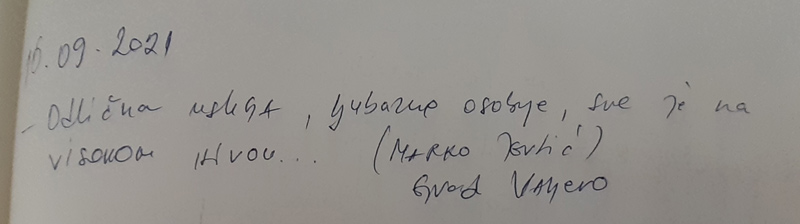 16.09.2021
- Odlična usluga, ljubazno osoblje, sve je na
visokom nivou... (Marko Jevtić)
Grad Valjevo